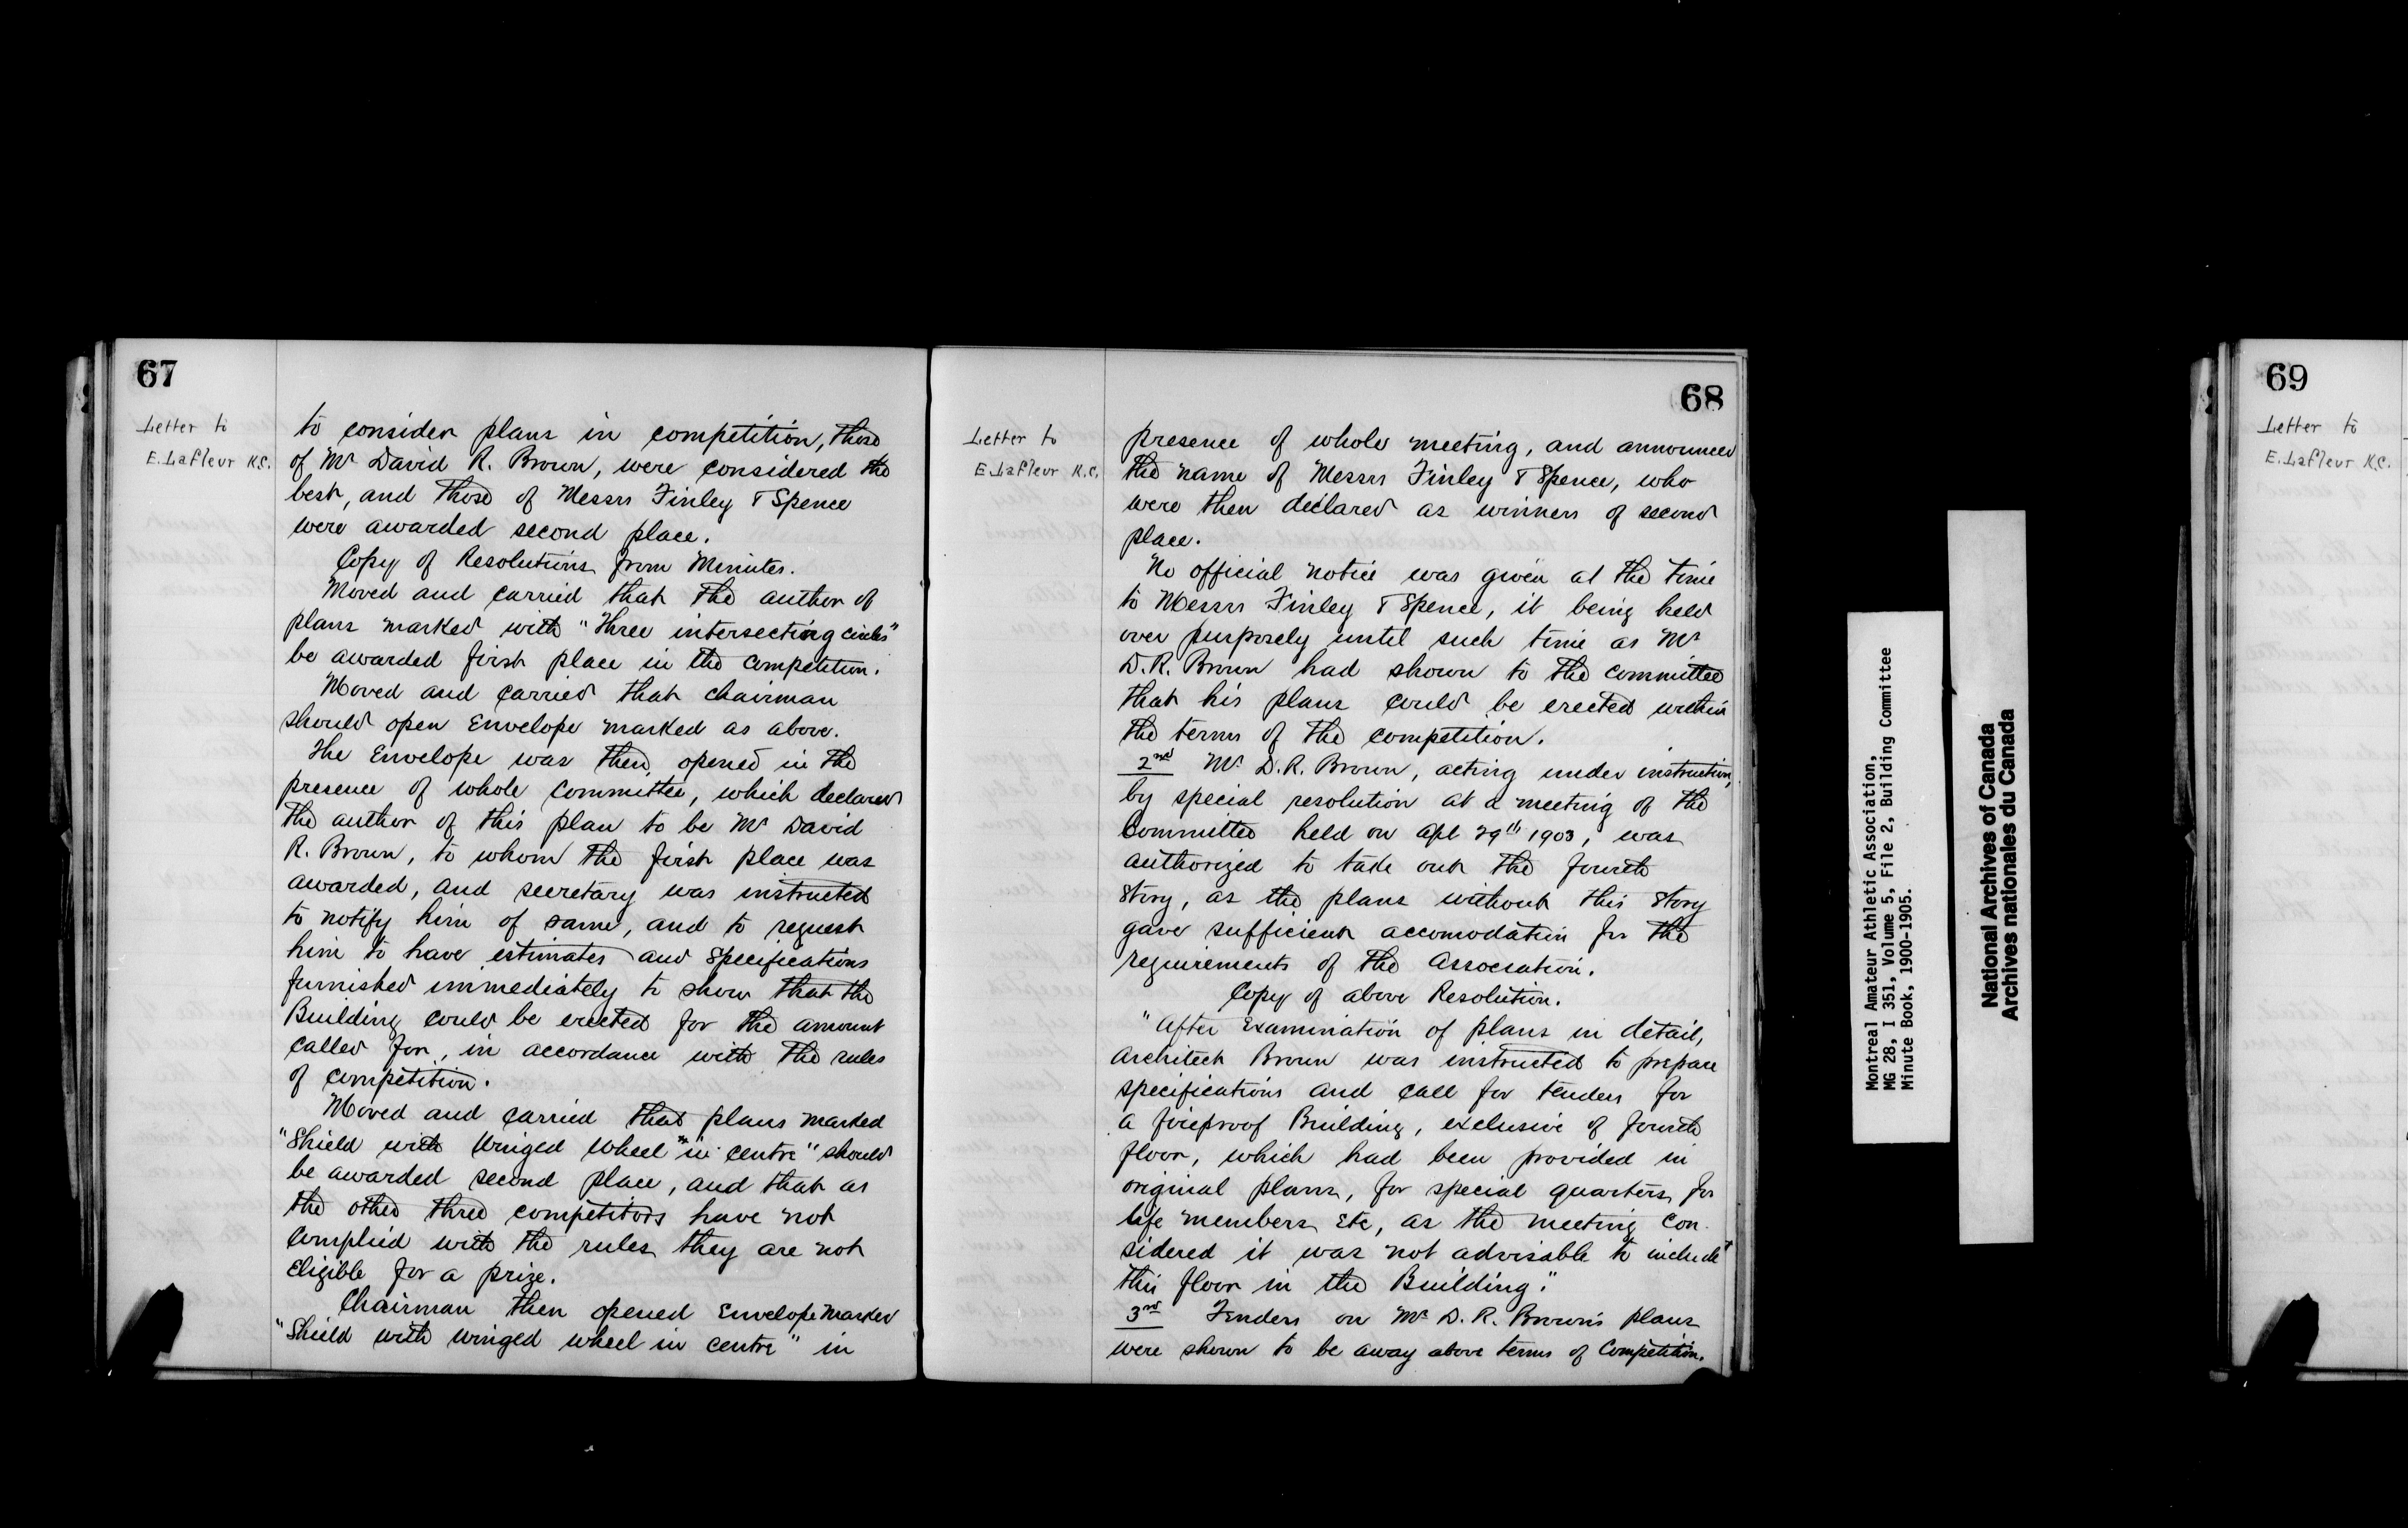 67
Letter to
E. Lafleur K.C.
to consider plans in competition, those
of Mr David R. Brown, were considered the
best, and those of Messrs Finley & Spence
were awarded second place.
Copy of Resolutions from Minutes.
Moved and carried that the author of
plans marked with "Three intersecting circles"
be awarded first place in the competition.
Moved and carried that chairman
should open Envelope marked as above.
The Envelope was then opened in the
presence of whole committee, which declared
the author of this plan to be Mr David
R. Brown, to whom the first place was
awarded, and secretary was instructed
to notify him of same, and to request
him to have estimates and specifications
furnished immediately to show that the
Building could be erected for the amount
called for, in accordance with the rules
of competition.
Moved and carried that plans marked
"Shield with Winged wheel in centre" should
be awarded second place, and that as
the other three competitors have not
complied with the rules they are not
Eligible for a prize.
Chairman then opened Envelope marked
"Shield with winged wheel in centre" in
68
Letter to
E. Lafleur K.C.
presence of whole meeting, and announced
the name of Messrs Finley & Spence, who
were then declared as winners of second
place.
No official notice was given at the time
to Messrs Finley & Spence, it being held
over purposely until such time as Mr
D. R. Brown had shown to the committee
that his plans could be erected within
the terms of the competition.
2nd Mr D. R. Brown, acting under instruction,
by special resolution at a meeting of the
Committee held on Apl 29th 1903, was
authorized to take out the fourth
story, as the plans without this story
gave sufficient accomodation for the
requirements of the Association.
Copy of above Resolution.
"After Examination of plans in detail,
Architect Brown was instructed to prepare
specifications and call for tenders for
a fireproof Building, exclusive of fourth
floor, which had been provided in
original plans, for special quarters for
life members Etc, as the meeting con-
sidered it was not advisable to include
this floor in the Building."
3rd Tenders on Mr D. R. Brown's plans
were shown to be away above terms of Competition.
Montreal Amateur Athletic Association,
MG 28, I 351, Volume 5, File 2, Building Committee
Minute Book, 1900-1905.
National Archives of Canada
Archives nationales du Canada
69
Letter to
E. Lafleur K.C.